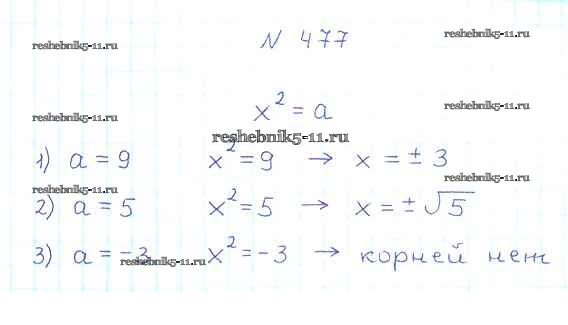 № 477
reshebnik5-11.ru
reshebnik5-11.ru
x² = a
reshebnik5-11.ru
reshebnik5-11.ru
reshebnik5-11.ru
1) a = 9 x² = 9 → x = ± 3
reshebnik5-11.ru
reshebnik5-11.ru
2) a = 5 x² = 5 → x = ± √5
3) a = -3 x² = -3 → корней нет
reshebnik5-11.ru